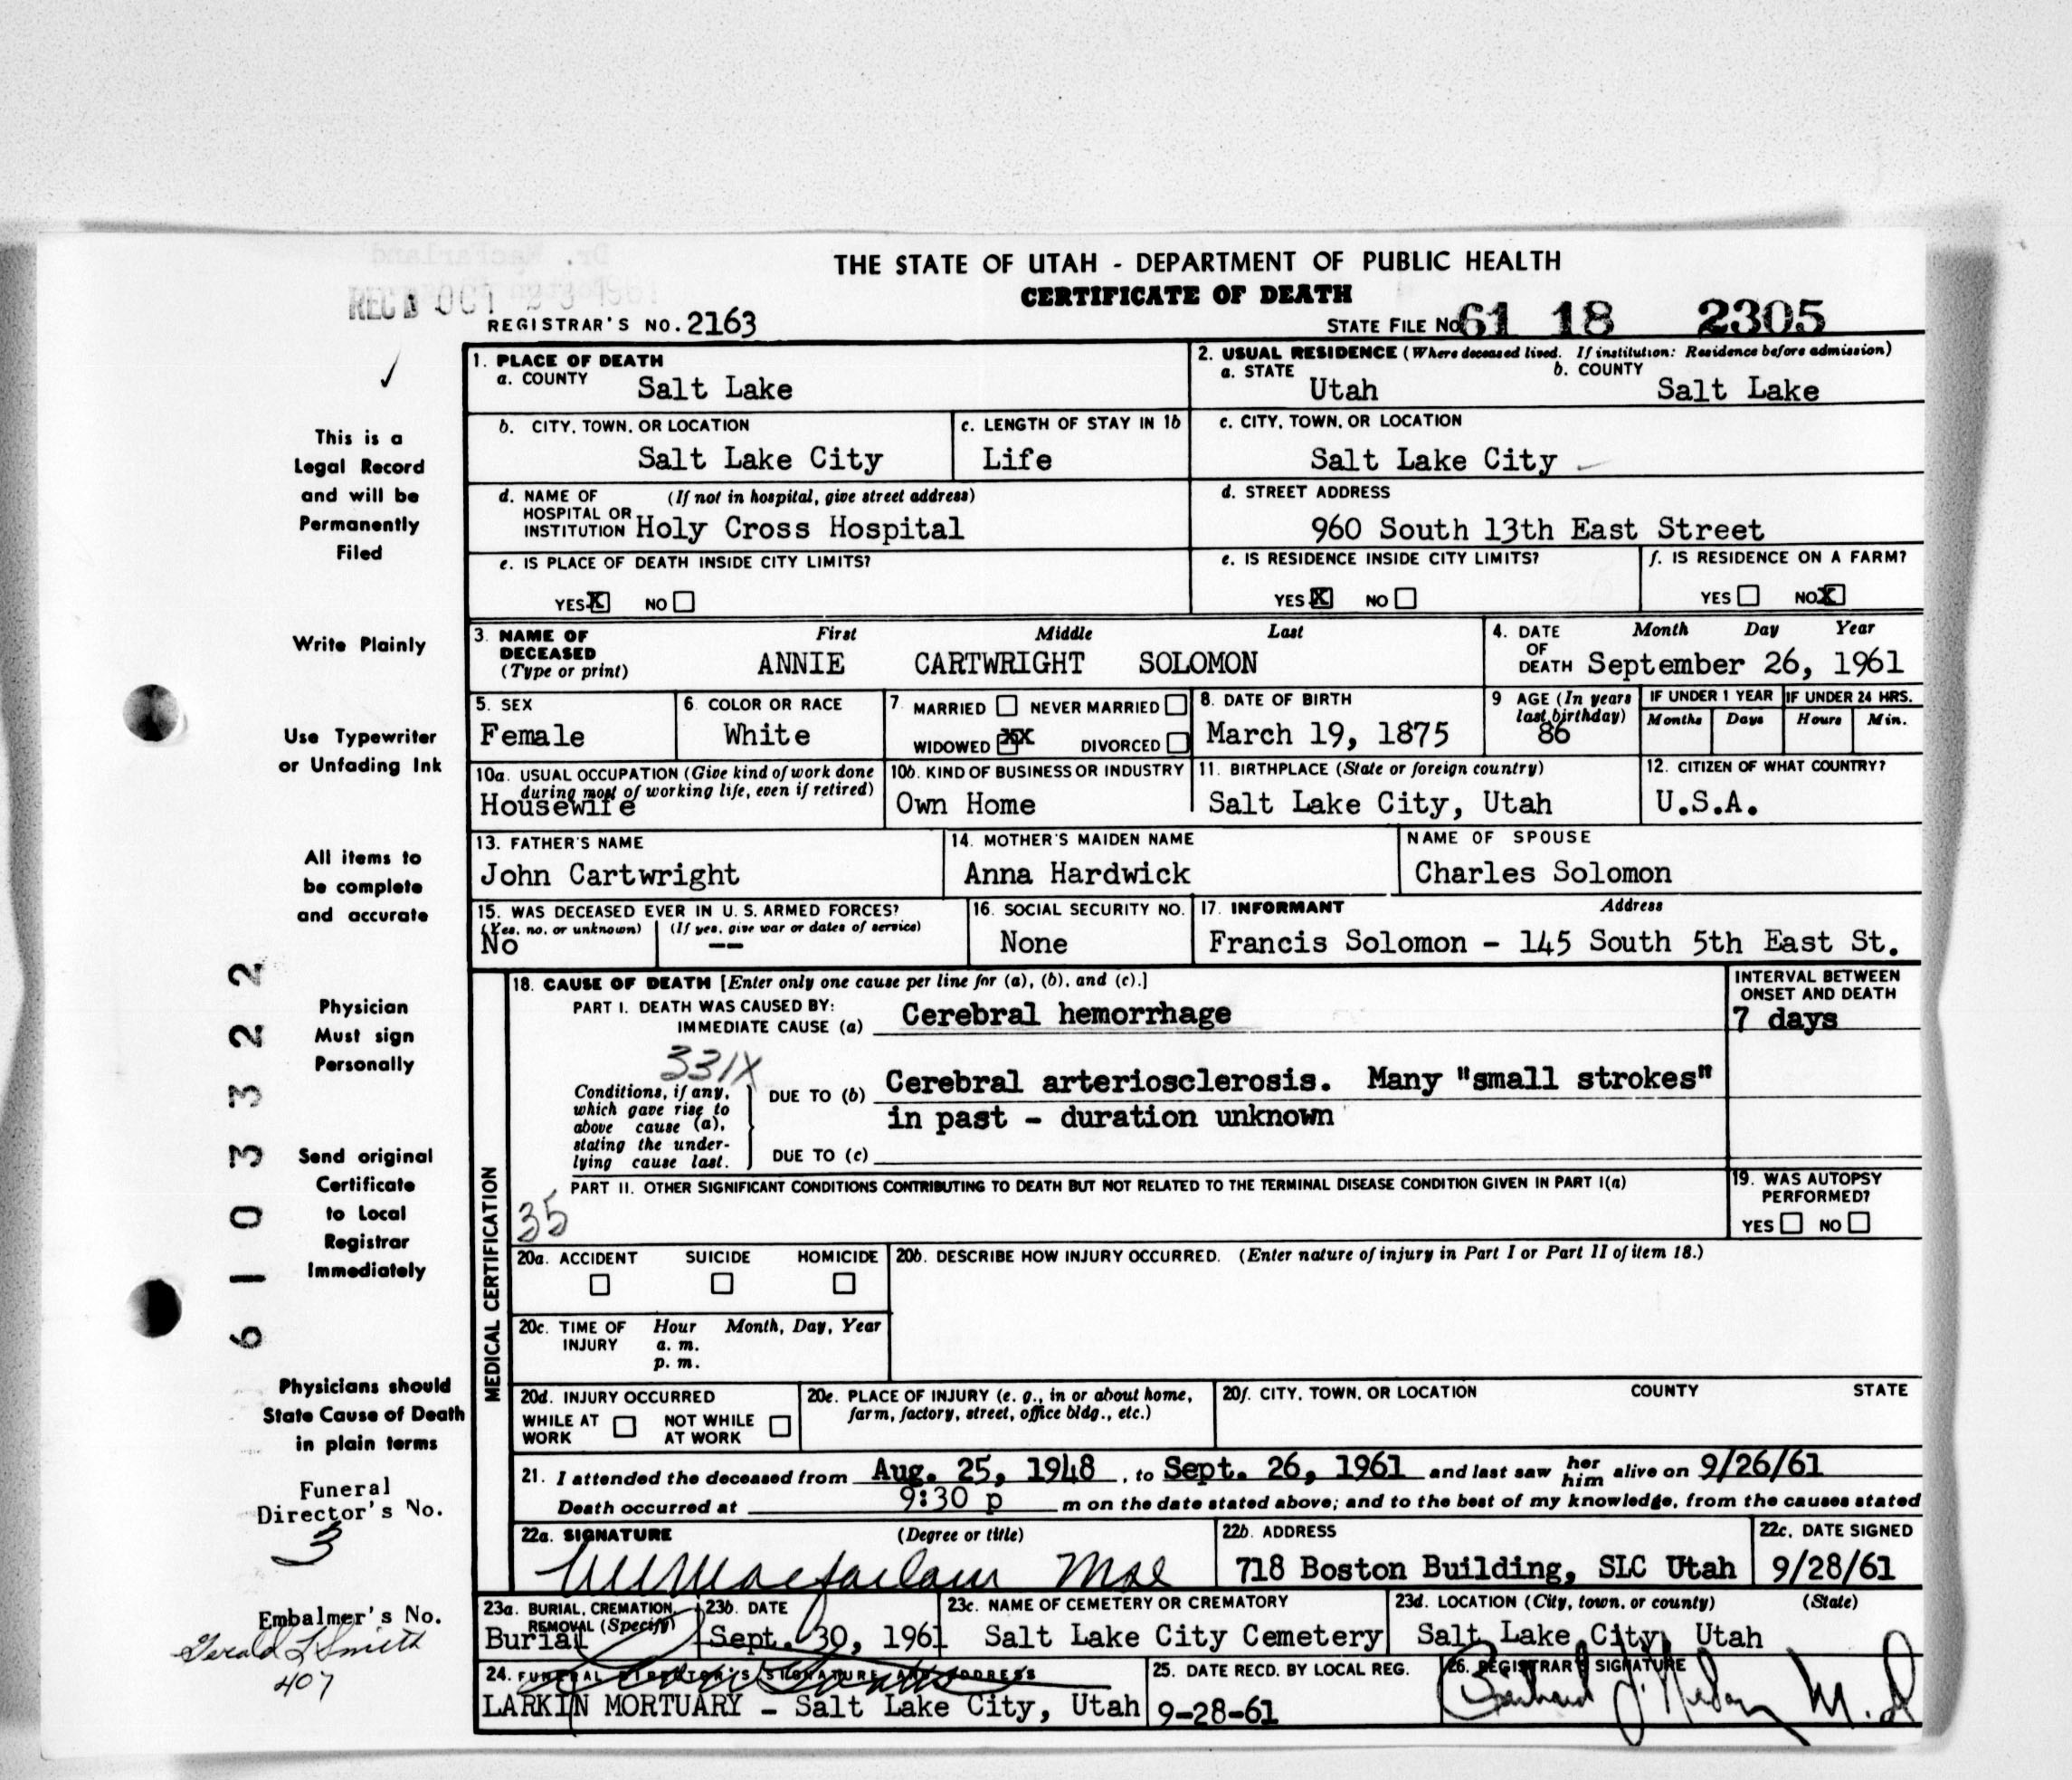 THE STATE OF UTAH - DEPARTMENT OF PUBLIC HEALTH
CERTIFICATE OF DEATH
REC'D OCT
REGISTRAR'S NO. 2163 STATE FILE NO. 61 18 2305
1. PLACE OF DEATH
a. COUNTY Salt Lake
2. USUAL RESIDENCE (Where deceased lived. If institution: Residence before admission)
a. STATE Utah b. COUNTY Salt Lake
b. CITY, TOWN, OR LOCATION Salt Lake City
c. LENGTH OF STAY IN 1b Life
c. CITY, TOWN, OR LOCATION Salt Lake City
d. NAME OF HOSPITAL OR INSTITUTION (If not in hospital, give street address) Holy Cross Hospital
d. STREET ADDRESS 960 South 13th East Street
e. IS PLACE OF DEATH INSIDE CITY LIMITS?
YES X NO
e. IS RESIDENCE INSIDE CITY LIMITS?
YES X NO
f. IS RESIDENCE ON A FARM?
YES NO X
3. NAME OF DECEASED (Type or print) First Middle Last
ANNIE CARTWRIGHT SOLOMON
4. DATE OF DEATH Month Day Year
September 26, 1961
5. SEX Female
6. COLOR OR RACE White
7. MARRIED NEVER MARRIED
WIDOWED XX DIVORCED
8. DATE OF BIRTH March 19, 1875
9 AGE (In years last birthday) 86
IF UNDER 1 YEAR Months Days
IF UNDER 24 HRS. Hours Min.
10a. USUAL OCCUPATION (Give kind of work done during most of working life, even if retired)
Housewife
10b. KIND OF BUSINESS OR INDUSTRY Own Home
11. BIRTHPLACE (State or foreign country) Salt Lake City, Utah
12. CITIZEN OF WHAT COUNTRY? U.S.A.
13. FATHER'S NAME John Cartwright
14. MOTHER'S MAIDEN NAME Anna Hardwick
NAME OF SPOUSE Charles Solomon
15. WAS DECEASED EVER IN U. S. ARMED FORCES?
(Yes, no, or unknown) (If yes, give war or dates of service)
No --
16. SOCIAL SECURITY NO. None
17. INFORMANT Address
Francis Solomon - 145 South 5th East St.
MEDICAL CERTIFICATION
18. CAUSE OF DEATH [Enter only one cause per line for (a), (b), and (c).]
INTERVAL BETWEEN ONSET AND DEATH
PART I. DEATH WAS CAUSED BY:
IMMEDIATE CAUSE (a) Cerebral hemorrhage 7 days
331X
Conditions, if any, which gave rise to above cause (a), stating the underlying cause last.
DUE TO (b) Cerebral arteriosclerosis. Many "small strokes"
in past - duration unknown
DUE TO (c)
PART II. OTHER SIGNIFICANT CONDITIONS CONTRIBUTING TO DEATH BUT NOT RELATED TO THE TERMINAL DISEASE CONDITION GIVEN IN PART I(a)
35
19. WAS AUTOPSY PERFORMED?
YES NO
20a. ACCIDENT SUICIDE HOMICIDE
20b. DESCRIBE HOW INJURY OCCURRED. (Enter nature of injury in Part I or Part II of item 18.)
20c. TIME OF INJURY Hour Month, Day, Year
a. m.
p. m.
20d. INJURY OCCURRED
WHILE AT WORK NOT WHILE AT WORK
20e. PLACE OF INJURY (e. g., in or about home, farm, factory, street, office bldg., etc.)
20f. CITY, TOWN, OR LOCATION COUNTY STATE
21. I attended the deceased from Aug. 25, 1948, to Sept. 26, 1961 and last saw her him alive on 9/26/61
Death occurred at 9:30 p m on the date stated above; and to the best of my knowledge, from the causes stated
22a. SIGNATURE (Degree or title)
22b. ADDRESS 718 Boston Building, SLC Utah
22c. DATE SIGNED 9/28/61
23a. BURIAL, CREMATION, REMOVAL (Specify) Burial
23b. DATE Sept. 30, 1961
23c. NAME OF CEMETERY OR CREMATORY Salt Lake City Cemetery
23d. LOCATION (City, town, or county) (State) Salt Lake City, Utah
24. FUNERAL DIRECTOR'S SIGNATURE AND ADDRESS
LARKIN MORTUARY - Salt Lake City, Utah
25. DATE RECD. BY LOCAL REG. 9-28-61
26. REGISTRAR'S SIGNATURE
This is a
Legal Record
and will be
Permanently
Filed
Write Plainly
Use Typewriter
or Unfading Ink
All items to
be complete
and accurate
Physician
Must sign
Personally
Send original
Certificate
to Local
Registrar
Immediately
Physicians should
State Cause of Death
in plain terms
Funeral
Director's No.
3
Embalmer's No.
Gerald L Smith
407
61033222